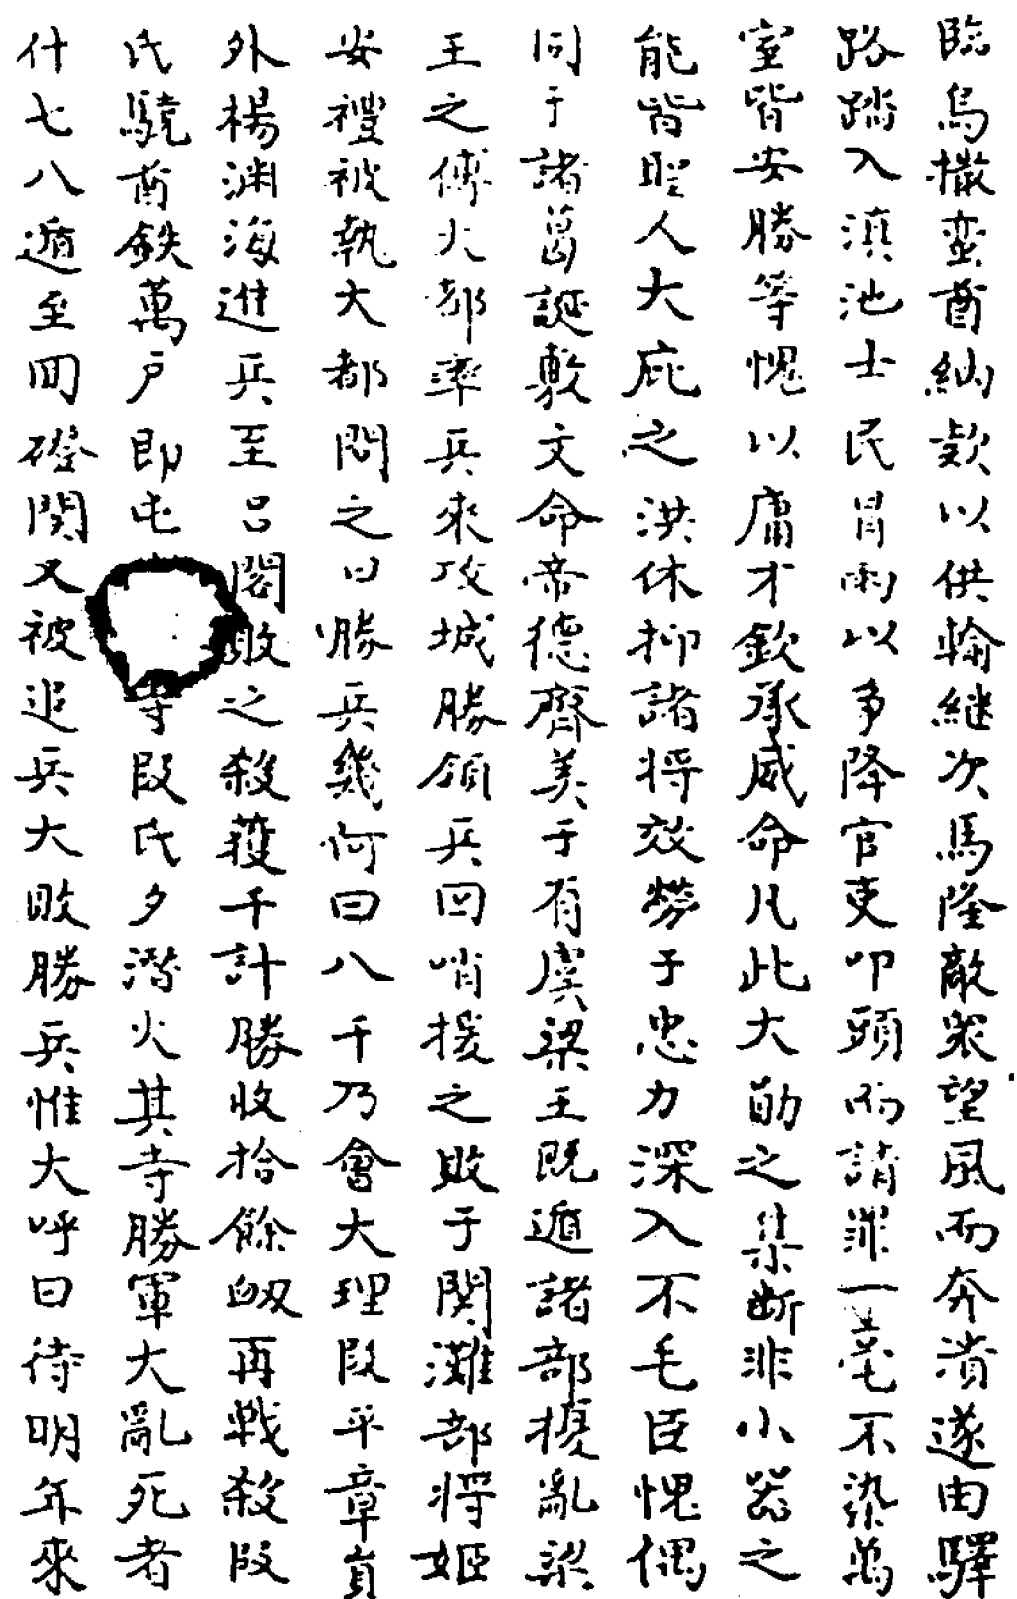 臨烏撒蛮酋納款以供輸継次馬隆敵衆望風而奔潰遂由驛
路踏入滇池士民冐雨以争降官吏叩頭而請罪一毫不染萬
室皆安勝等愧以庸才欽承威命凡此大勛之集断非小器之
能皆聖人大庇之洪休抑諸将效劳于忠力深入不毛臣愧偶
同于諸葛誕敷文命帝德齊美于有虞梁王既遁諸部擾亂梁
王之傅火都率兵來攻城勝領兵回哨援之敗于関灘部将姬
安禮被執大都問之曰勝兵幾何曰八千乃會大理段平章貟
外楊渊海進兵至吕閣敗之殺獲千計勝收拾餘衂再戦殺段
氏驍酋鉄萬户即屯寺段氏夕潜火其寺勝軍大亂死者
什七八遁至囬磴関又被追兵大敗勝兵惟大呼曰待明年來